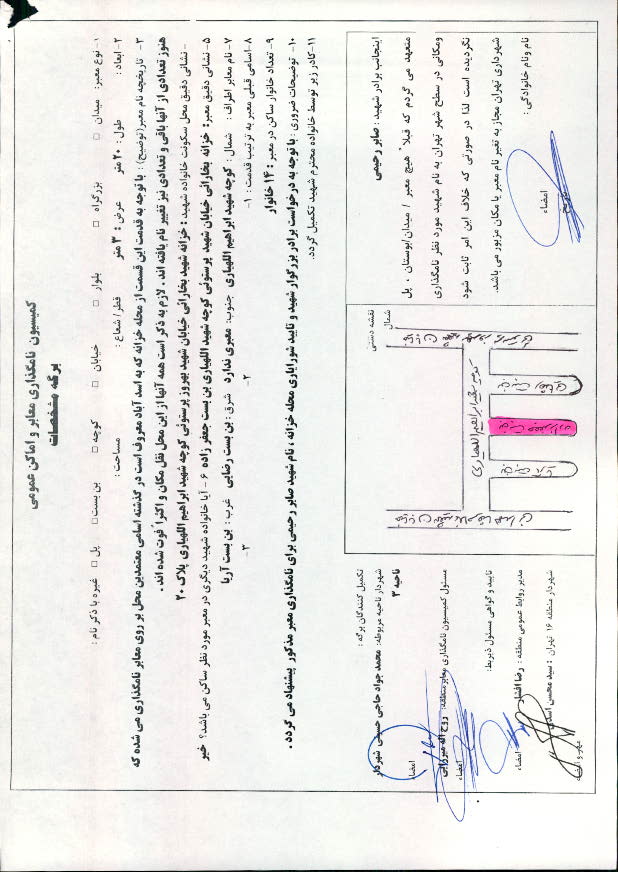 کمیسیون نامگذاری معابر و اماکن عمومی
برگه مشخصات
۱- نوع معبر: میدان □ بزرگراه □ بلوار □ خیابان □ کوچه □ بن بست □ پل □ غیره با ذکر نام :
۲- ابعاد : طول : ۲۰ متر عرض : ۳ متر قطر / شعاع : مساحت :
۳- تاریخچه نام معبر(توضیح) : با توجه به قدمت این قسمت از محله خزانه که به اسد آباد معروف است در گذشته اسامی معتمدین محل بر روی معابر نامگذاری می شده که
هنوز تعدادی از آنها باقی و تعدادی نیز تغییر نام یافته اند . لازم به ذکر است همه آنها از این محل نقل مکان و اکثراً فوت شده اند .
- نشانی دقیق محل سکونت خانواده شهید : خزانه شهید بخارائی خیابان شهید بهروز پرستوئی کوچه شهید ابراهیم اللهیاری پلاک ۲۰
۵- نشانی دقیق معبر: خزانه بخارائی خیابان شهید پرستوئی کوچه شهید اللهیاری بن بست جعفر زاده ۶ - آیا خانواده شهید دیگری در معبر مورد نظر ساکن می باشد؟ خیر
۷- نام معابر اطراف : شمال : کوچه شهید ابراهیم اللهیاری جنوب: معبری ندارد شرق : بن بست رضایی غرب : بن بست آریا
۸-اسامی قبلی معبر به ترتیب قدمت : ۱- ۲- ۳-
۹- تعداد خانوار ساکن در معبر : ۱۴ خانوار
۱۰- توضیحات ضروری : با توجه به درخواست برادر بزرگوار شهید و تایید شورایاری محله خزانه ، نام شهید صابر رحیمی برای نامگذاری معبر مذکور پیشنهاد می گردد .
۱۱-کادر زیر توسط خانواده محترم شهید تکمیل گردد.
اینجانب برادر شهید : صابر رحیمی
متعهد می گردم که قبلاً هیچ معبر / میدان/بوستان ، پل
ومکانی در سطح شهر تهران به نام شهید مورد نظر نامگذاری
نگردیده است لذا در صورتی که خلاف این امر ثابت شود
شهرداری تهران مجاز به تغییر نام معبر یا مکان مزبور می باشد.
نام ونام خانوادگی :
امضاء
تاریخ
نقشه دستی
شمال
کوچه شهید ابراهیم اللهیاری
بن بست رضایی
بن بست جعفرزاده
بن بست آریا
تکمیل کنندگان برگه :
شهردار ناحیه مربوطه: محمد جواد حاجی حسینی شهردار
ناحیه ۳
امضاء
مسئول کمیسیون نامگذاری معابرمنطقه: روح اله میرزایی
امضاء
تاییه و گواهی مسئول ذیربط:
مدیر روابط عمومی منطقه : رضا افشار
امضاء
شهردار منطقه ۱۶ تهران : سید محسن اسدی
مهر و امضاء